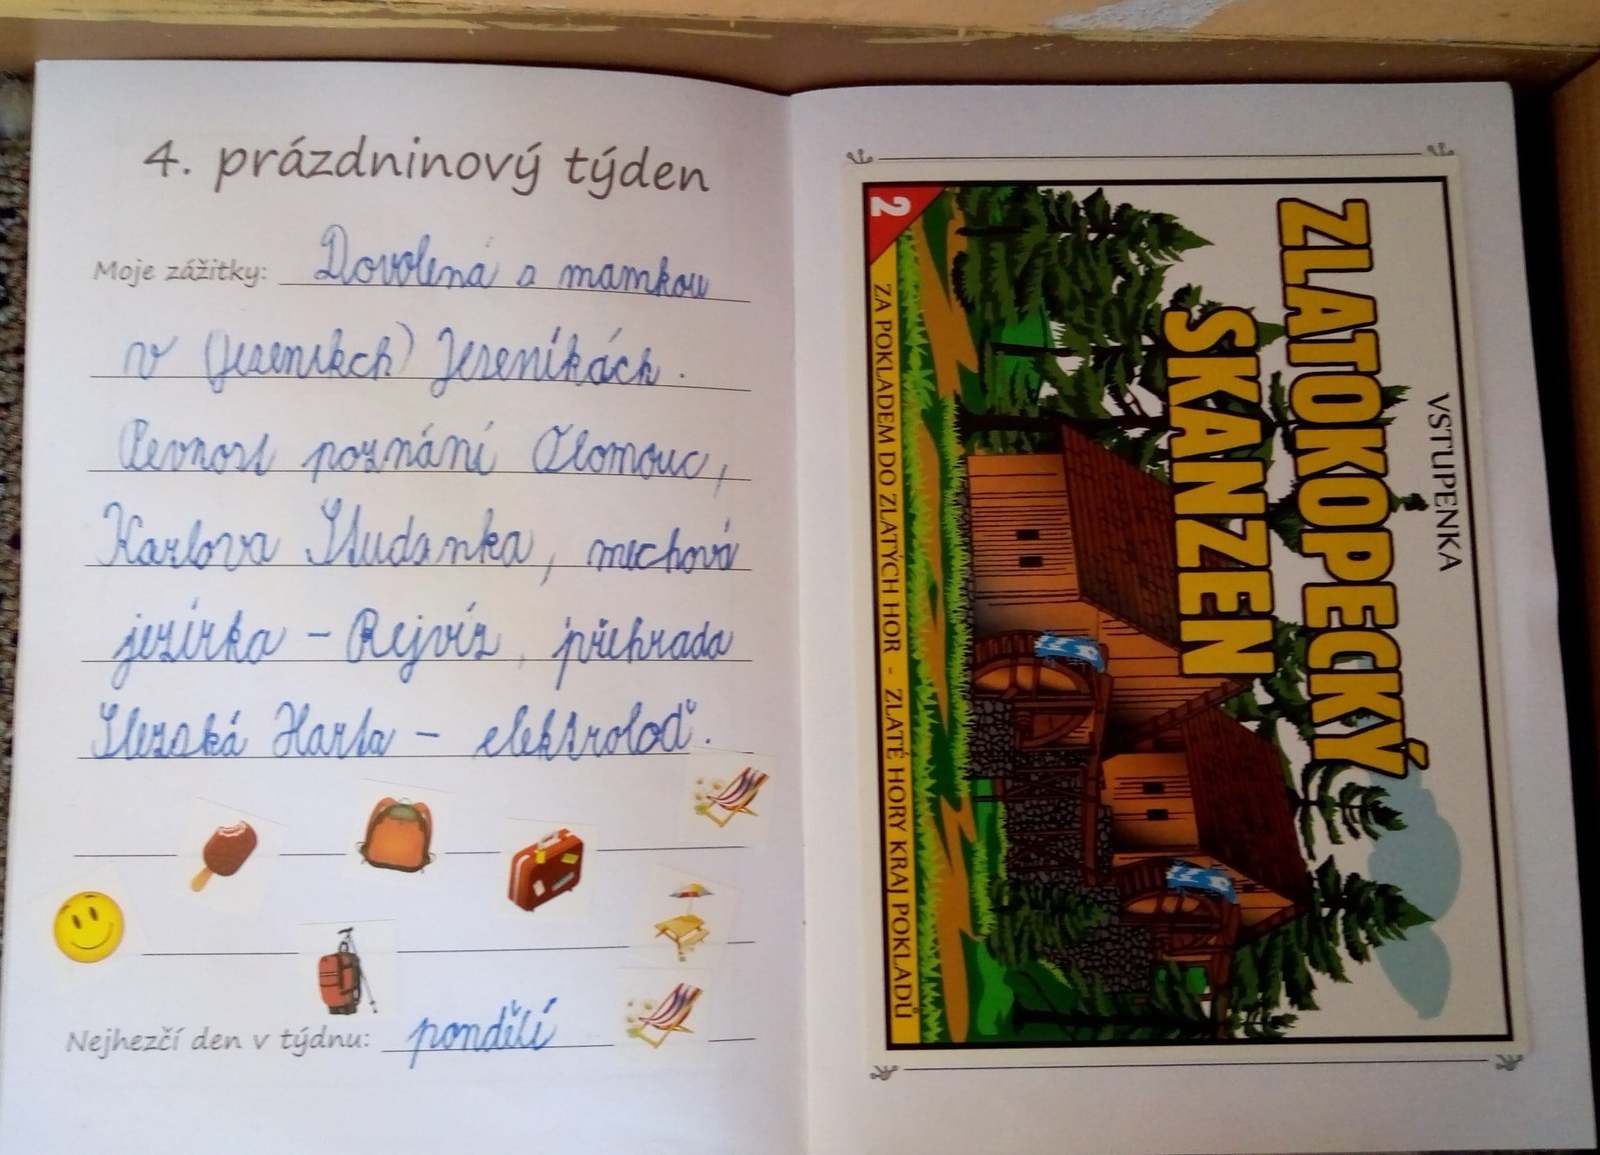 4. prázdninový týden
Moje zážitky: Dovolená s mamkou
v (Jesenikch) Jeseníkách.
Pevnost poznání Olomouc,
Karlova Studanka, mechová
jezírka - Rejvíz, přehrada
Slezská Harta - elektroloď.
Nejhezčí den v týdnu: pondělí
VSTUPENKA
ZLATOKOPECKÝ
SKANZEN
2
ZA POKLADEM DO ZLATÝCH HOR - ZLATÉ HORY KRAJ POKLADŮ